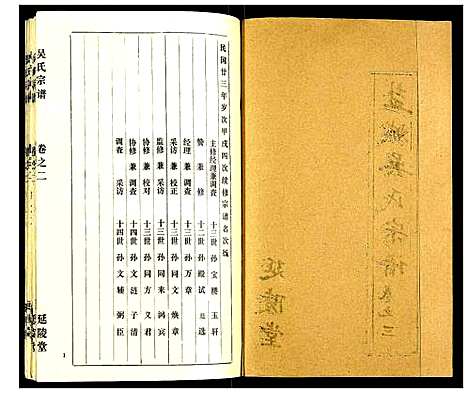 民国廿三年岁次甲戌四次续修宗谱名次

主修经理兼调查 十三世孙 宝 玉轩
赞 兼 修 十二世孙 殿试 选
经理兼调查 十三世孙 万章
采访兼校正 十三世孙 同文 焕章
监修兼采访 十三世孙 同来 鸿宾
协修兼校对 十三世孙 同方 义君
协修兼调查 十四世孙 文涟 子清
调查兼采访 十四世孙 文辅 弼臣
1
吴氏宗谱
卷之二
延陵堂
吴氏宗谱
卷之三
延陵堂